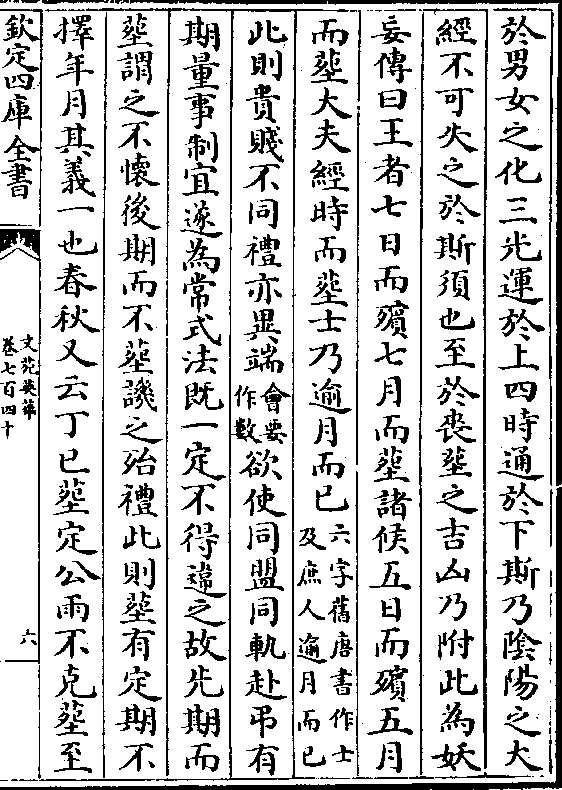 於男女之化三光運於上四時通於下斯乃隂陽之大
經不可失之於斯須也至於喪塟之吉凶乃附此為妖
妄傳曰王者七日而殯七月而塟諸侯五日而殯五月
而塟大夫經時而塟士乃逾月而已六字舊唐書作士及庶人逾月而已
此則貴賤不同禮亦異端會要作數欲使同盟同軌赴弔有
期量事制宜遂為常式法既一定不得違之故先期而
塟謂之不懷後期而不塟譏之殆禮此則塟有定期不
擇年月其義一也春秋又云丁巳塟定公雨不克塟至
欽定四庫全書
文苑英華
卷七百四十
六